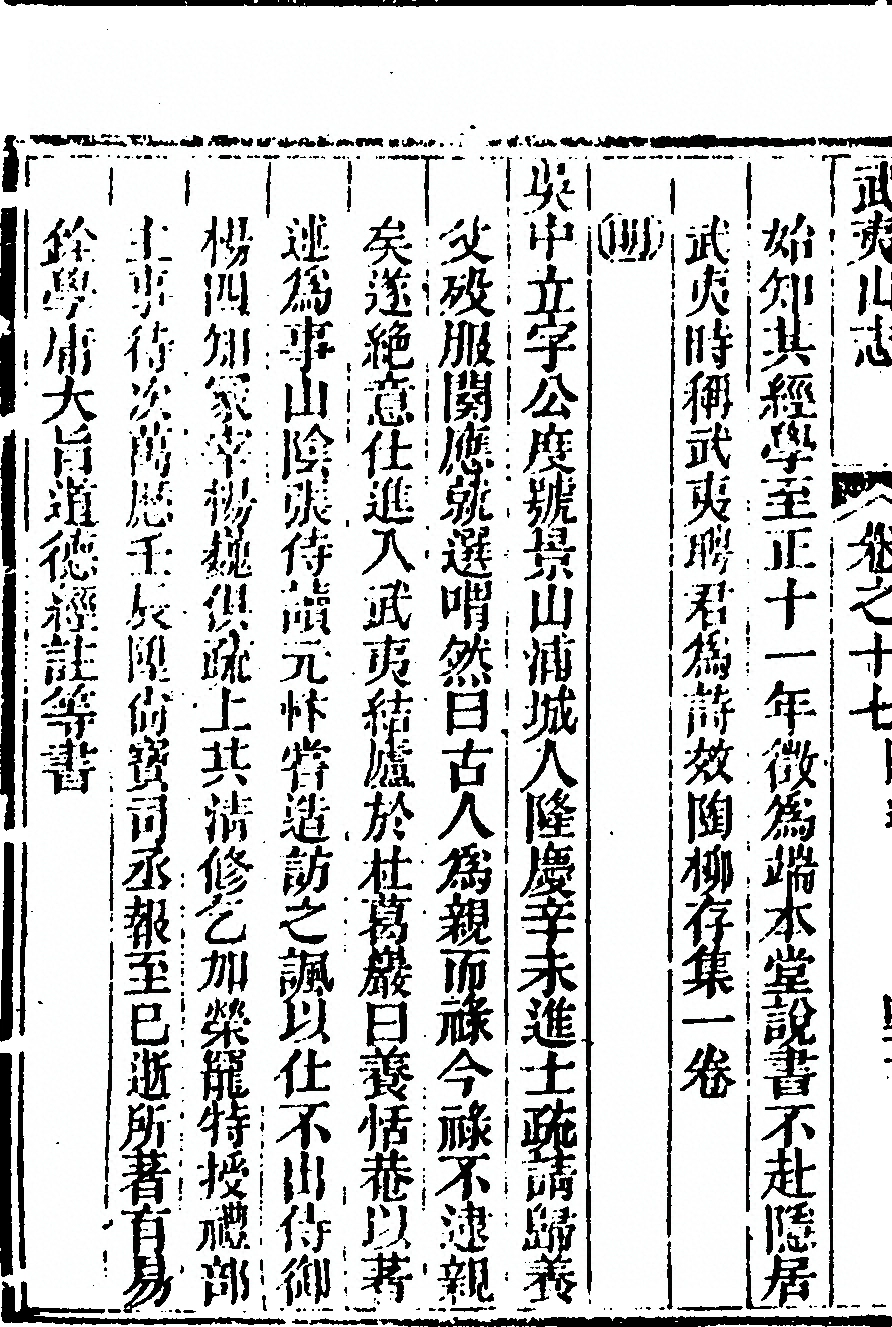 武夷山志 卷之十七
始知其經學至正十一年徵為端本堂說書不赴隱居
武夷時稱武夷聘君為詩效陶柳存集一卷
明
吳中立字公度號景山浦城人隆慶辛未進士疏請歸養
父歿服闋應就選喟然曰古人為親而祿今祿不逮親
矣遂絶意仕進入武夷結廬於杜葛巖曰養恬菴以著
述為事山陰張侍讀元忭嘗造訪之諷以仕不出侍御
楊四知冢宰楊巍俱疏上其清修乞加榮寵特授禮部
主事待次萬歷壬辰陞尚寶司丞報至已逝所著有易
銓學庸大旨道德經註等書